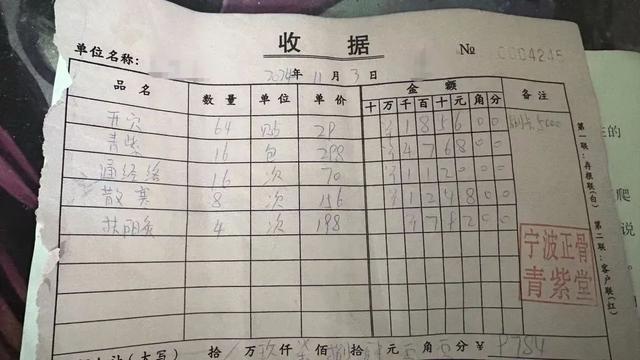 收 据
单位名称: № 0004245
2024年 11月 3日
品名 数量 单位 单价 金额 备注
十 万 千 百 十 元 角 分
开穴 64 贴 29 ¥ 1 8 5 6 0 0
青紫 16 包 298 ¥ 4 7 6 8 0 0
通经络 16 次 70 ¥ 1 1 2 0 0 0
散寒 8 次 156 ¥ 1 2 4 8 0 0
扶阳灸 4 次 198 ¥ 7 9 2 0 0
第一联:存根联(白) 第二联:客户联(红)
宁波正骨
青紫堂
(大写) 拾 万玖仟柒佰捌拾 元 角 分 ¥ 9784
的
爬
说